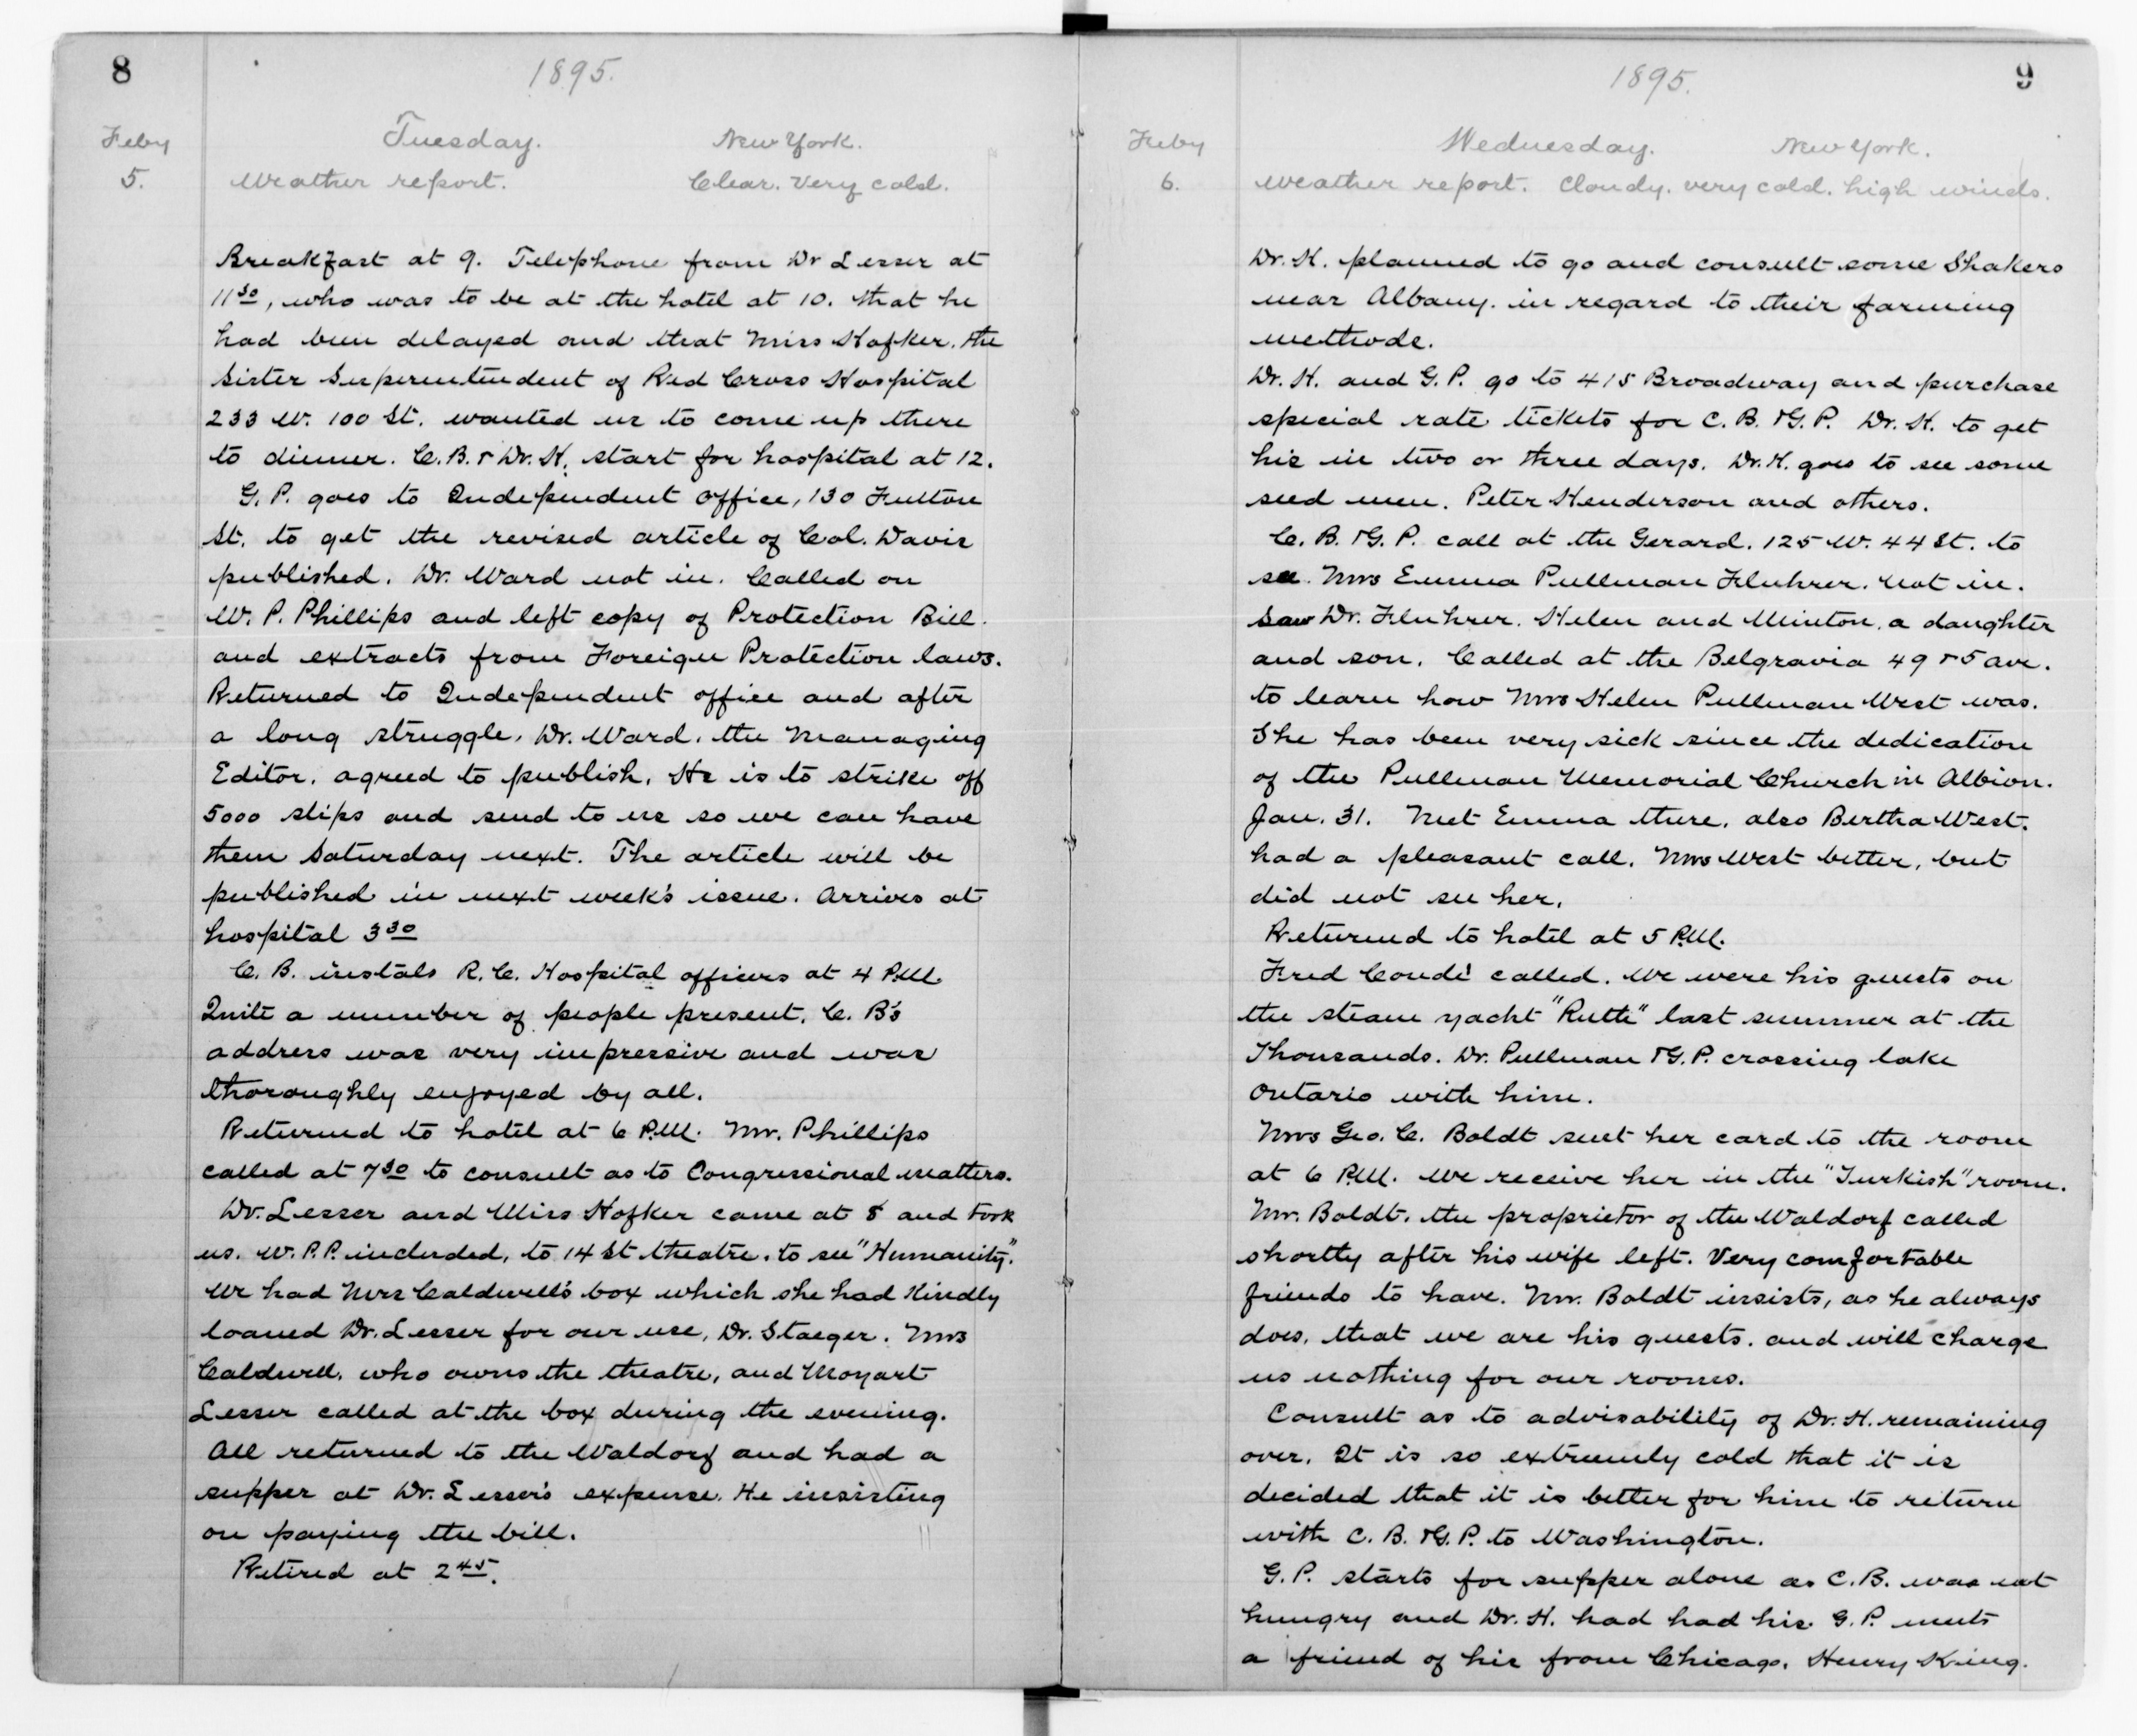 8
1895.
Feby Tuesday. New York.
5. Weather report. Clear. Very cold.
Breakfast at 9. Telephone from Dr Lesser at
11³⁰, who was to be at the hotel at 10. that he
had been delayed and that Miss Hofker. the
Sister Superintendent of Red Cross Hospital
233 W. 100 St. wanted us to come up there
to dinner. C. B. & Dr. H. start for hospital at 12.
G. P. goes to Independent office, 130 Fulton
St. to get the revised article of Col. Davis
published. Dr. Ward not in. Called on
W. P. Phillips and left copy of Protection Bill.
and extracts from Foreign Protection laws.
Returned to Independent office and after
a long struggle, Dr. Ward, the Managing
Editor, agreed to publish. He is to strike off
5000 slips and send to us so we can have
them Saturday next. The article will be
published in next week's issue. Arrives at
hospital 3³⁰
C. B. instals R. C. Hospital officers at 4 P.M.
Quite a number of people present. C. B's
address was very impressive and was
thoroughly enjoyed by all.
Returned to hotel at 6 P.M. Mr. Phillips
called at 7³⁰ to consult as to Congressional matters.
Dr. Lesser and Miss Hofker came at 8 and took
us. W. P. P. included, to 14 St theatre. to see "Humanity".
We had Mrs Caldwell's box which she had kindly
loaned Dr. Lesser for our use, Dr. Staeger. Mrs
Caldwell. who owns the theatre, and Mozart
Lesser called at the box during the evening.
All returned to the Waldorf and had a
supper at Dr. Lesser's expense. He insisting
on paying the bill.
Retired at 2⁴⁵.
9
1895.
Feby Wednesday. New York.
6. Weather report. Cloudy. very cold. high winds.
Dr. H. planned to go and consult some Shakers
near Albany. in regard to their farming
methods.
Dr. H. and G. P. go to 415 Broadway and purchase
special rate tickets for C. B. & G. P. Dr. H. to get
his in two or three days. Dr. H. goes to see some
seed men. Peter Henderson and others.
C. B. & G. P. call at the Gerard. 125 W. 44 St. to
see Mrs Emma Pullman Fluhrer. not in.
Saw Dr. Fluhrer. Helen and Minton. a daughter
and son. Called at the Belgravia 49 & 5 ave.
to learn how Mrs Helen Pullman West was.
She has been very sick since the dedication
of the Pullman Memorial Church in Albion.
Jan. 31. Met Emma there. also Bertha West.
had a pleasant call. Mrs West better, but
did not see her.
Returned to hotel at 5 P.M.
Fred Condé called. We were his guests on
the steam yacht "Ruth" last summer at the
Thousands. Dr. Pullman & G. P. crossing lake
Ontario with him.
Mrs Geo. C. Boldt sent her card to the room
at 6 P.M. We receive her in the "Turkish" room.
Mr. Boldt. the proprietor of the Waldorf called
shortly after his wife left. Very comfortable
friends to have. Mr. Boldt insists, as he always
does, that we are his guests. and will charge
us nothing for our rooms.
Consult as to advisability of Dr. H. remaining
over. It is so extremely cold that it is
decided that it is better for him to return
with C. B. & G. P. to Washington.
G. P. starts for supper alone as C. B. was not
hungry and Dr. H. had had his. G. P. meets
a friend of his from Chicago. Henry King.